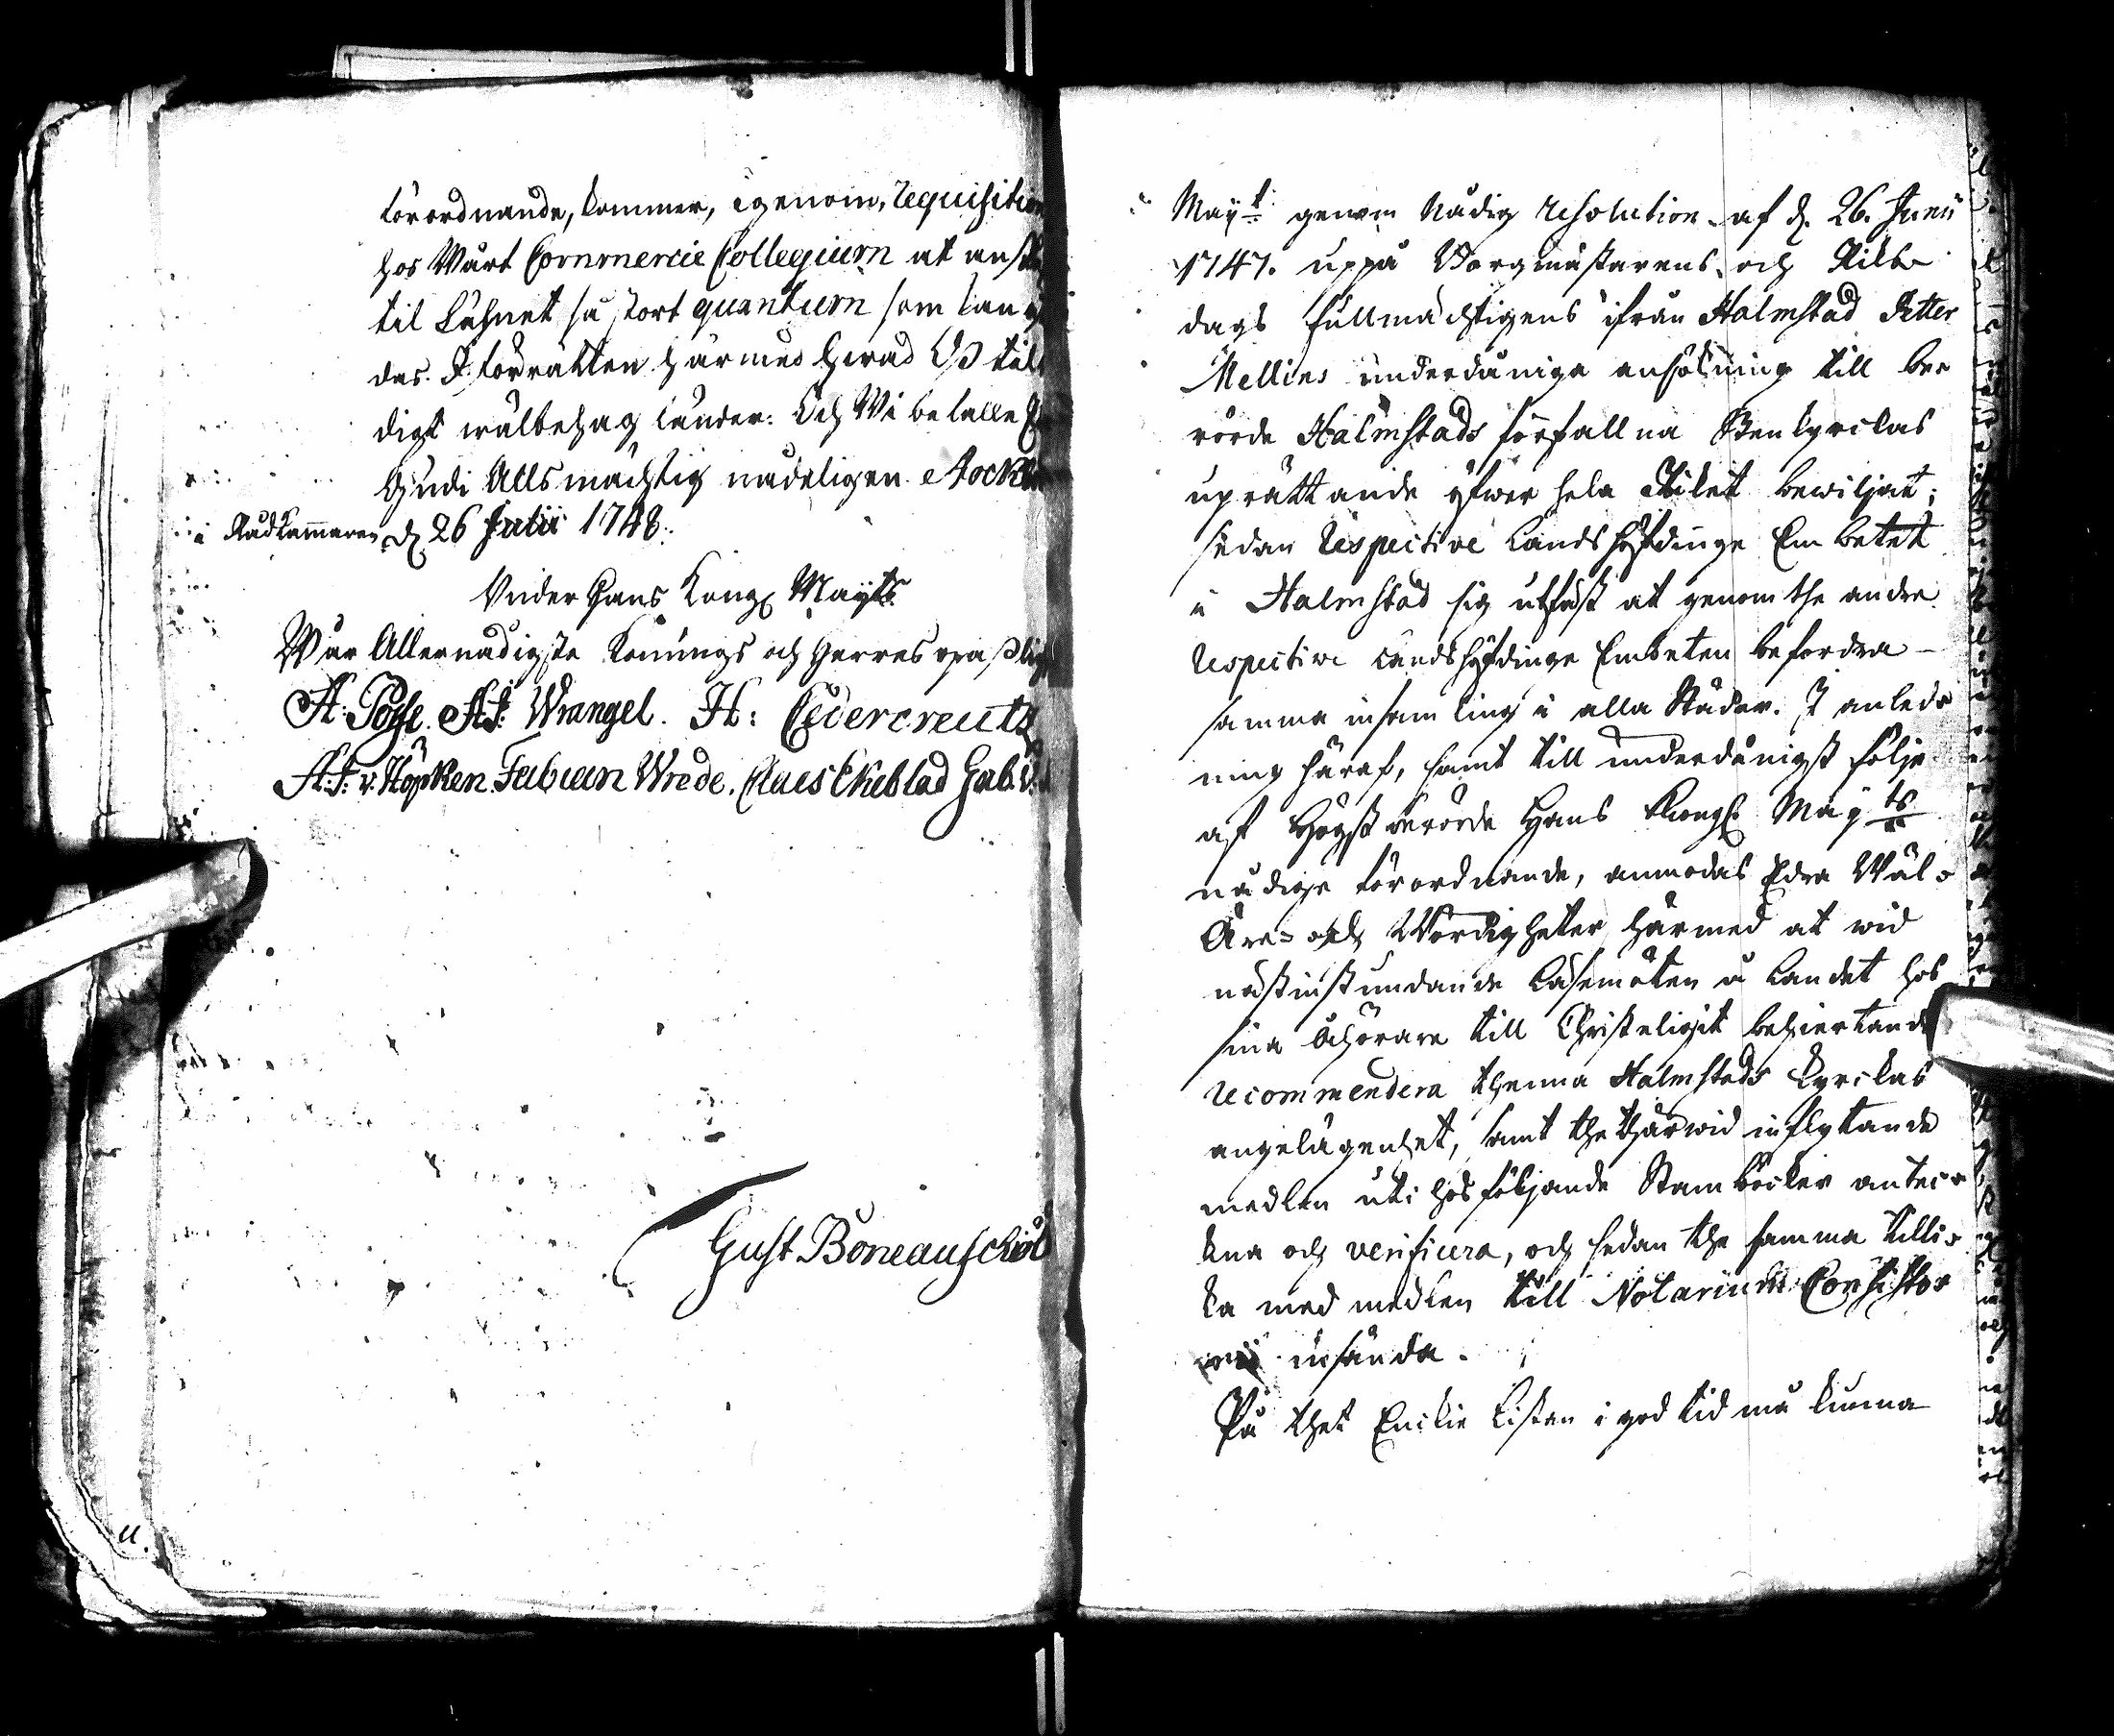 förordnande, kommer, igenom, requisition
hos Wårt Commercie Collegium at
til Lähnet så stort quantum som kan
des. I förrätten härmed hwad Oß til
digt wälbehag länder. Och Wi befalle
Gudi Allsmächtig nådeligen. Stockh
i RådKammaren d. 26 Julii 1748.
Under Hans Kongl Mayts
Wår Allernådigste Konungs och Herres opaßligh
A. Posse. A. J. Wrangel. H: Cedercreutz
A. J. v. Höpken. Fabian Wrede. Claes Ekeblad Gab.
Gust Boneauschiöl
u.
Mayt genom Nådig resolution af d. 26. Junii
1747. uppå Borgmästarens och Riks-
dags fullmächtigens ifrån Halmstad Petter
Mellins underdåniga ansökning till be-
rörde Halmstads förfallna Stenkyrckas
uprättande öfwer hela Riket bewiljat;
sedan respective Landshöfdinge Embetet
i Halmstad sig utfäst at genom the andre
respective Landshöfdinge Embeten befordra
samma insamling i alla Städer. I anled-
ning häraf, samt till underdånigst följe
af Högstberörde Hans Kongl Mayts
nådige förordnande, anmodas Edra Wäl-
Äre- och Wördigheter härmed at wid
nästinstundande Läsemöten å Landet hos
sina åhörare till Christeligit behiertande
recommendera thenna Halmstads Kyrckas
angelägenhet, samt the thärwid inflytande
medlen uti hosföljande Stamböcker anteck-
na och verificera, och sedan the samma tilli-
ka med medlen till Notarium Consisto-
rii insända.
På thet Enckie Listen i god tid må kunna